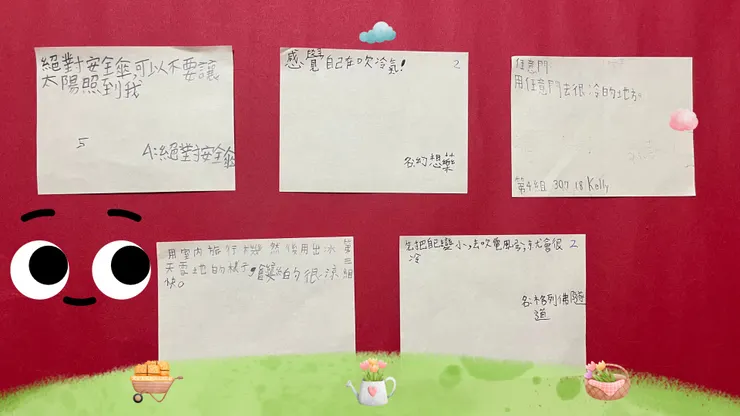 絕對安全傘,可以不要讓
太陽照到我
5
A:絕對安全傘
感覺自在吹冷氣!
2
名:幻想藥
任意門
用任意門去很冷的地方。
第4組 307 18 Kelly
用室內旅行機 然後用出冰
天雪地的樣子,
的很涼
快。
第三組
先把自己變小,去吹電風扇,就會很 2
冷
名:格列佛隧
道